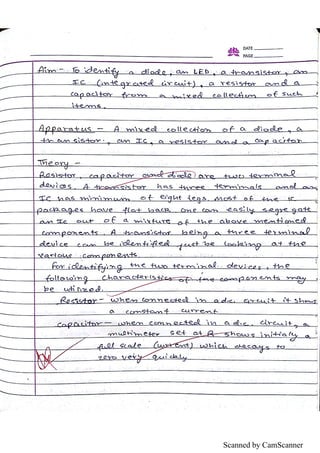 DATE
PAGE
Aim - To identify a diode, an LED, a transistor, an
IC (integrated circuit), a resistor and a
capacitor from a mixed collection of such
items.
Apparatus - A mixed collection of a diode, a
transistor, an IC, a resistor and a capacitor
Theory -
Resistor, capacitor and diode are two terminal
devices. A transistor has three terminals and an
IC has minimum of eight legs. Most of the IC
packages have flat back one can easily segregate
an IC out of a mixture of the above mentioned
components. A transistor being a three terminal
device can be identified just be looking at the
various components.
For identifying the two terminal devices, the
following characteristics of the components may
be utilized.
Resistor - when connected in a d.c. circuit it shows
a constant current
Capacitor - when connected in a d.c. circuit, a
multimeter set at R shows initially a
full scale (current) which decays to
zero very quickly
Scanned by CamScanner